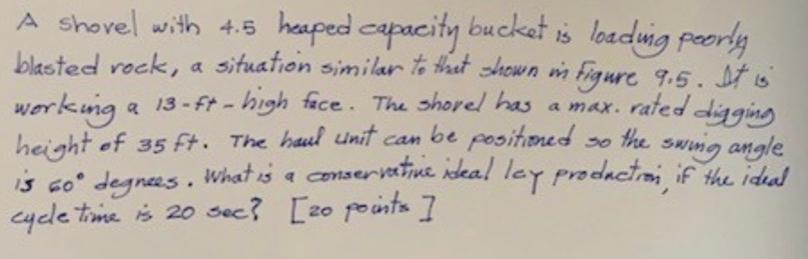 A shovel with 4.5 heaped capacity bucket is loading poorly
blasted rock, a situation similar to that shown in figure 9.5. It is
working a 13-ft-high face. The shovel has a max. rated digging
height of 35 ft. The haul unit can be positioned so the swing angle
is 60° degrees. What is a conservative ideal lcy production, if the ideal
cycle time is 20 sec? [20 points]